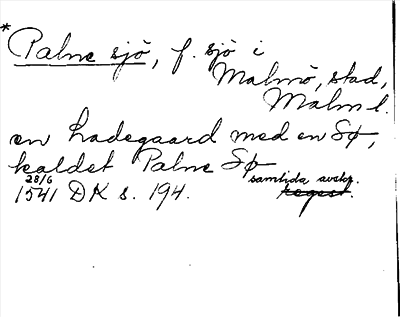 * Palne sjö, f. sjö i
Malmö, stad,
Malm l.
en Ladegaard med en Sø,
kaldet Palne Sø
28/6 samtida avskr.
1541 DK s. 194. regest.